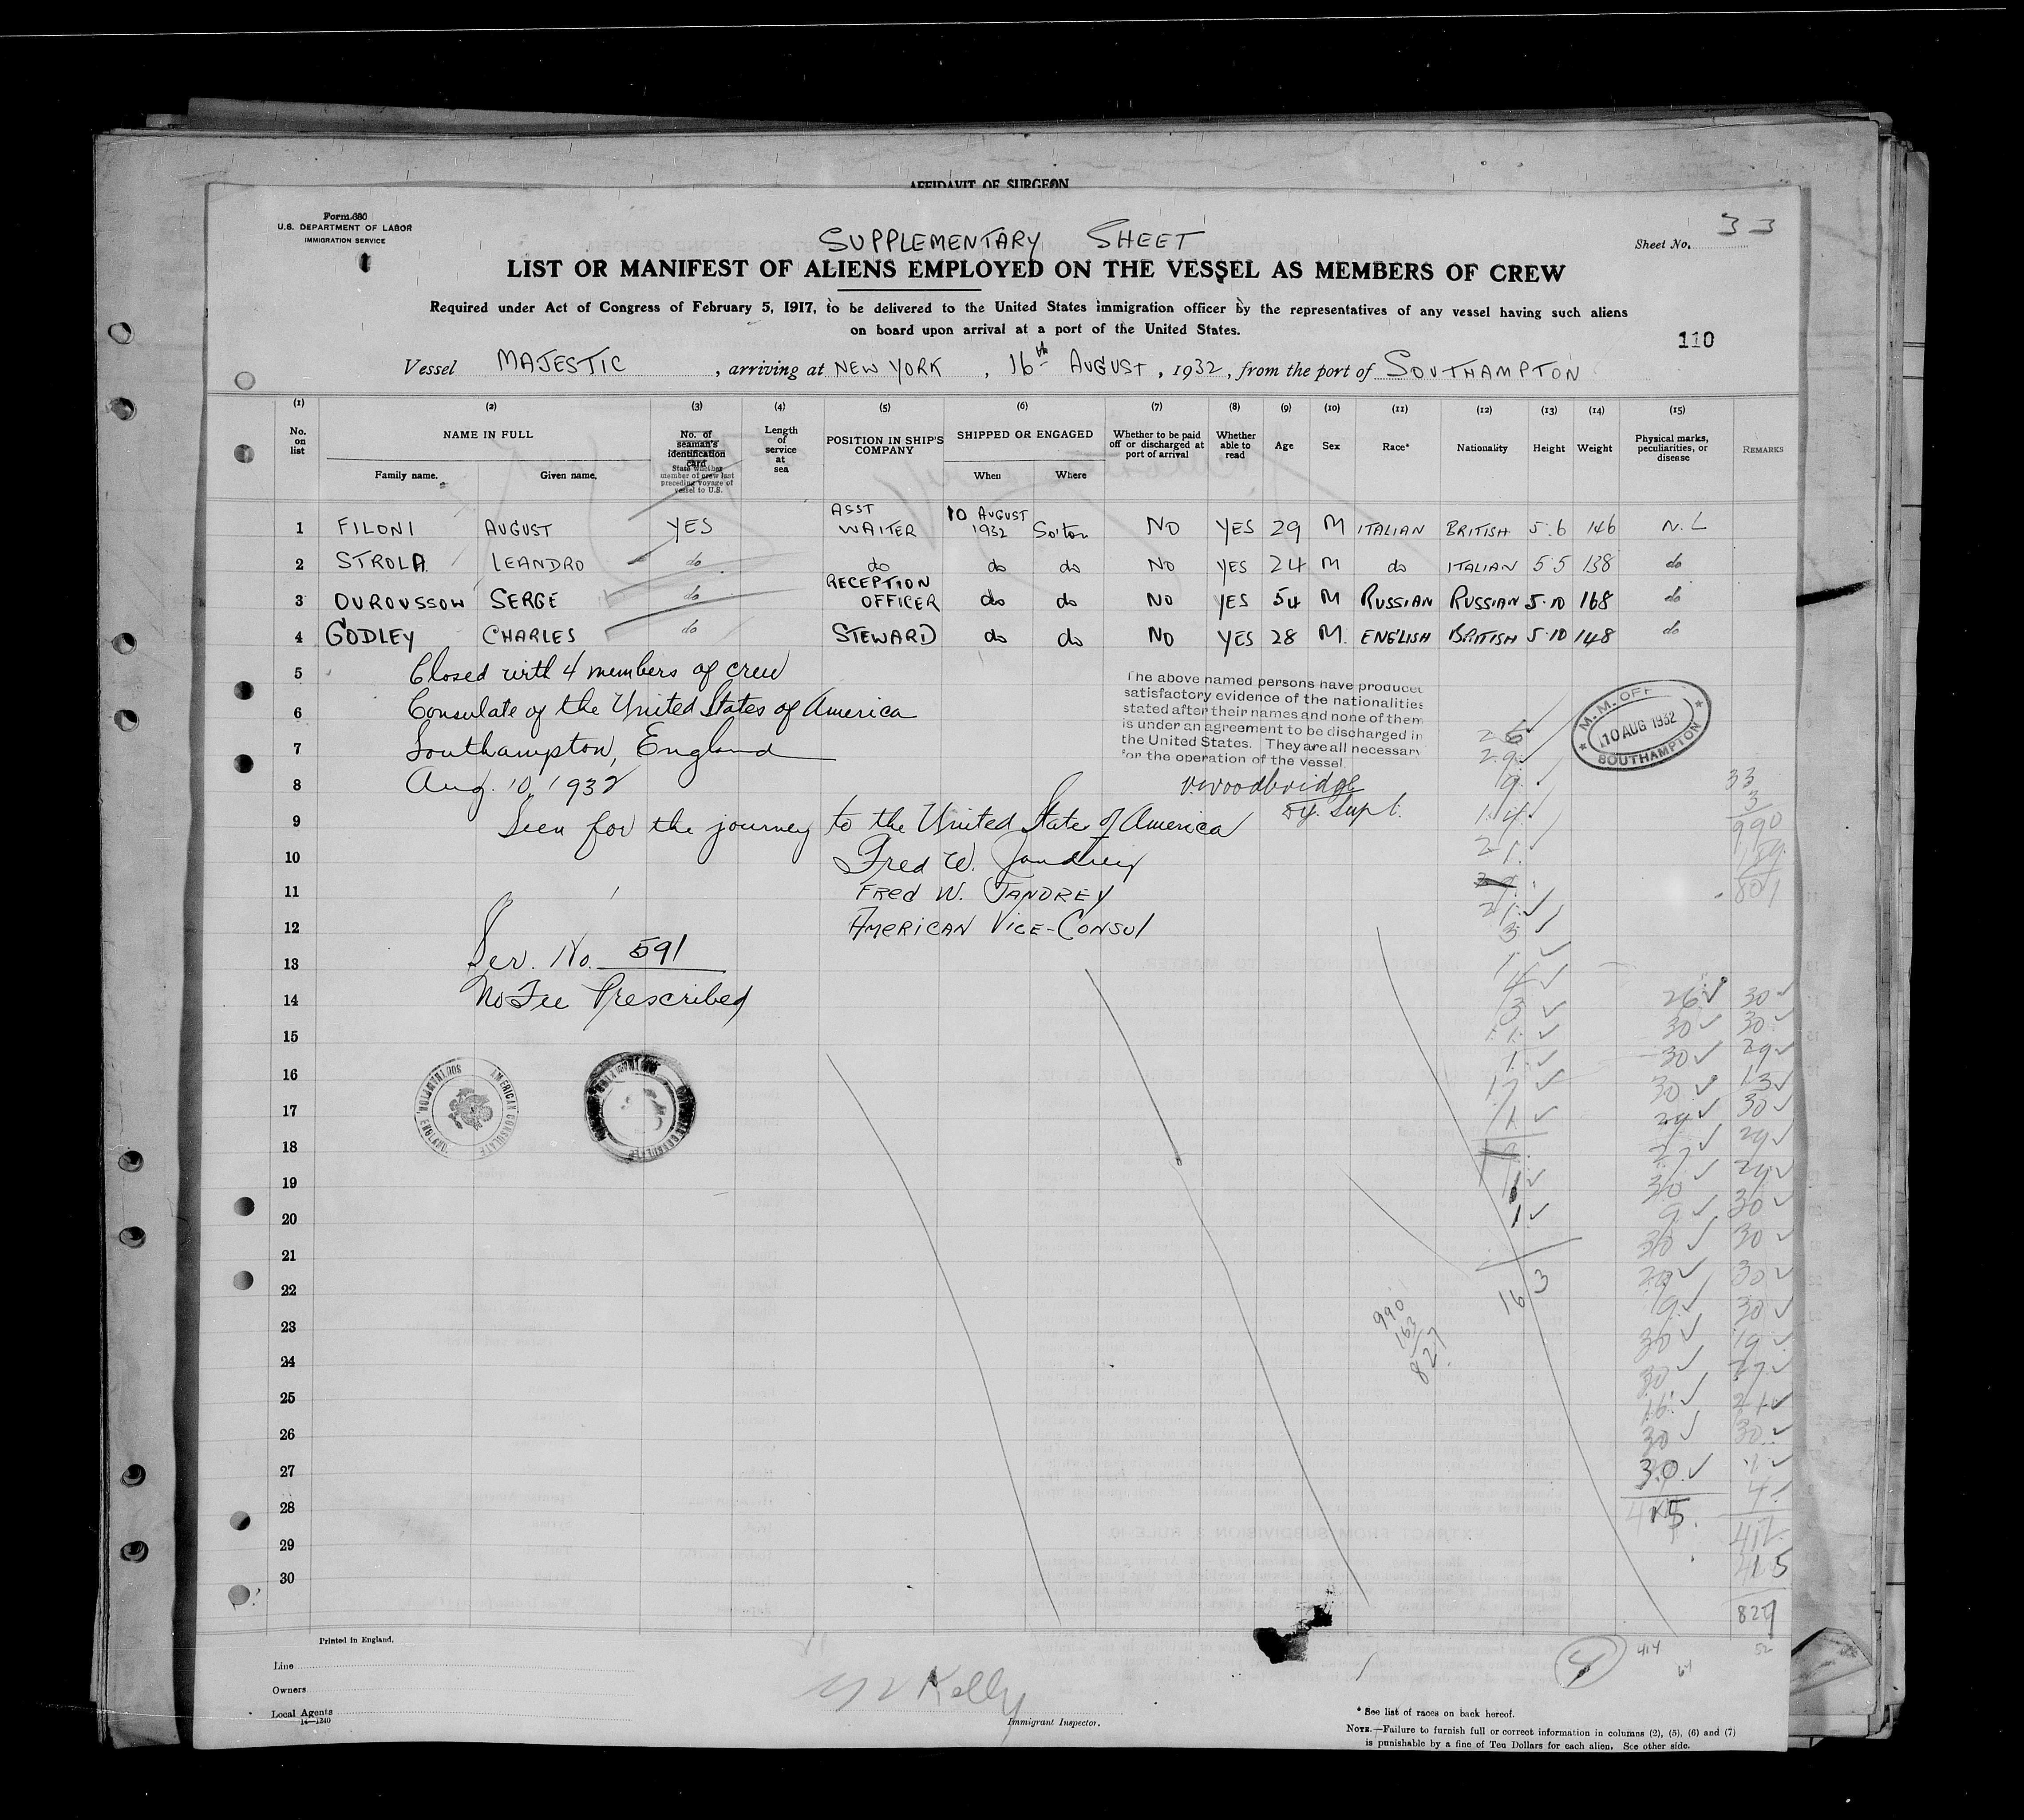 AFFIDAVIT OF SURGEON
Form 680
U.S. DEPARTMENT OF LABOR
IMMIGRATION SERVICE
SUPPLEMENTARY SHEET
Sheet No. 33
LIST OR MANIFEST OF ALIENS EMPLOYED ON THE VESSEL AS MEMBERS OF CREW
Required under Act of Congress of February 5, 1917, to be delivered to the United States immigration officer by the representatives of any vessel having such aliens
on board upon arrival at a port of the United States.
110
Vessel MAJESTIC, arriving at NEW YORK, 16th AUGUST, 1932, from the port of SOUTHAMPTON
(1) (2) (3) (4) (5) (6) (7) (8) (9) (10) (11) (12) (13) (14) (15)
No. on list NAME IN FULL No. of seaman's identification card State whether member of crew last preceding voyage of vessel to U.S. Length of service at sea POSITION IN SHIP'S COMPANY SHIPPED OR ENGAGED Whether to be paid off or discharged at port of arrival Whether able to read Age Sex Race* Nationality Height Weight Physical marks, peculiarities, or disease REMARKS
Family name. Given name. When Where
1 FILONI AUGUST YES ASST WAITER 10 AUGUST 1932 So'ton NO YES 29 M ITALIAN BRITISH 5.6 146 N.L
2 STROLA LEANDRO do do do do NO YES 24 M do ITALIAN 5.5 138 do
3 OUROUSSOW SERGE do RECEPTION OFFICER do do NO YES 54 M RUSSIAN RUSSIAN 5.10 168 do
4 GODLEY CHARLES do STEWARD do do NO YES 28 M. ENGLISH BRITISH 5.10 148 do
5 Closed with 4 members of crew
6 Consulate of the United States of America
7 Southampton, England
8 Aug. 10, 1932
The above named persons have produced
satisfactory evidence of the nationalities
stated after their names and none of them
is under an agreement to be discharged in
the United States. They are all necessary
for the operation of the vessel.
M.M. OFF
10 AUG 1932
SOUTHAMPTON
V. Woodbridge
Dy. Supt.
9 Seen for the journey to the United State of America
10 Fred W. Jandrey
11 FRED W. JANDREY
12 AMERICAN VICE-CONSUL
13 Ser. No. 591
14 No Fee Prescribed
15
16
AMERICAN CONSULATE
SOUTHAMPTON
ENGLAND
17
18
19
20
21
22
23
24
25
26
27
28
29
30
163
990
163
827
415
827
Printed in England.
Line
Owners
Local Agents
14—1240
Kelly
Immigrant Inspector.
414
* See list of races on back hereof.
NOTE.—Failure to furnish full or correct information in columns (2), (5), (6) and (7)
is punishable by a fine of Ten Dollars for each alien. See other side.